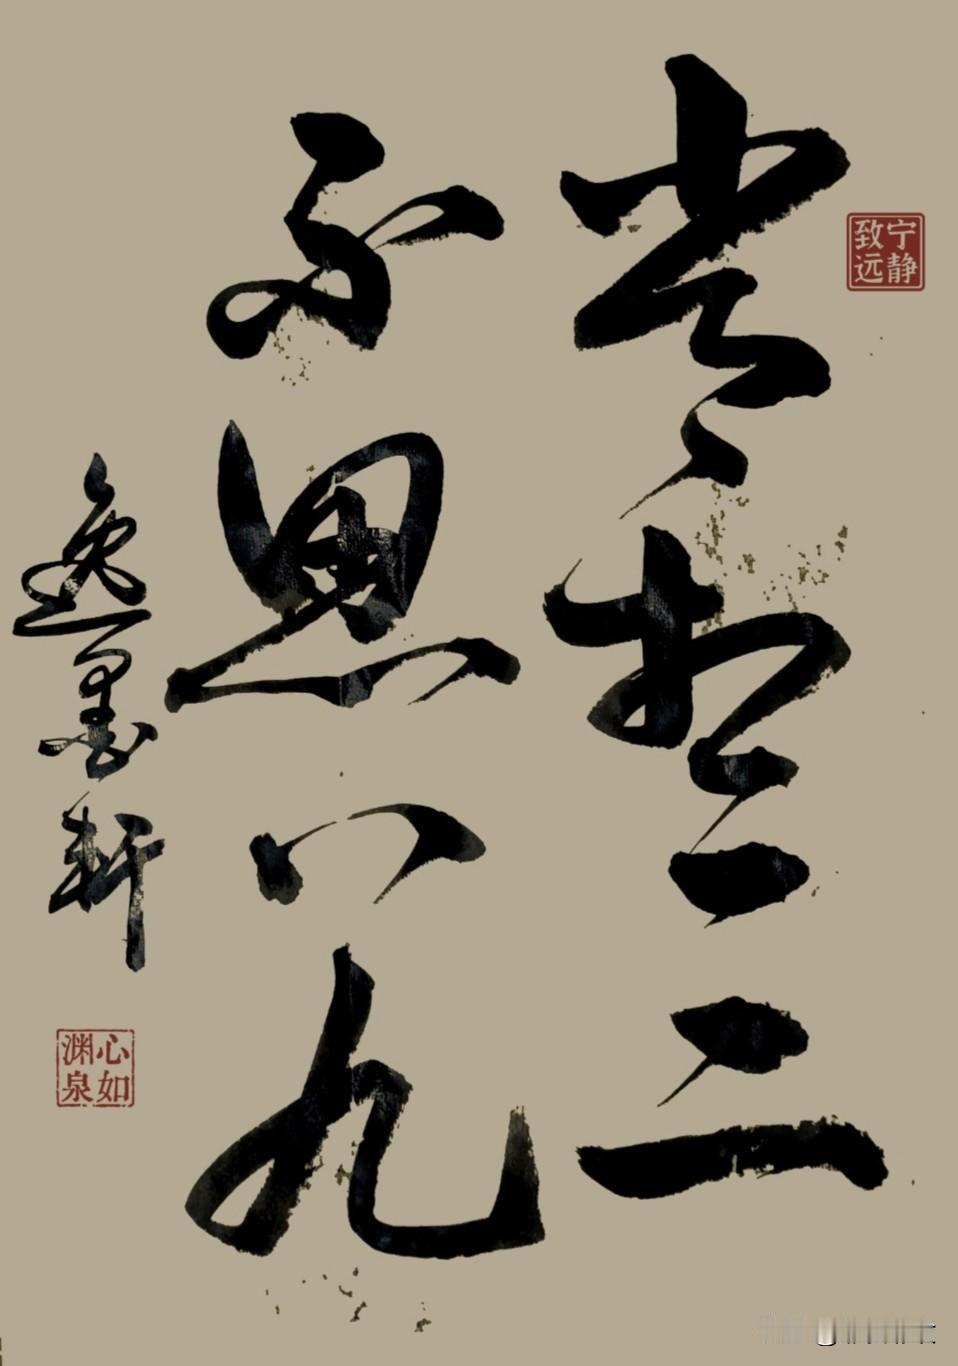 宁静
致远
常想一二
不思八九
逸墨轩
心如
渊泉